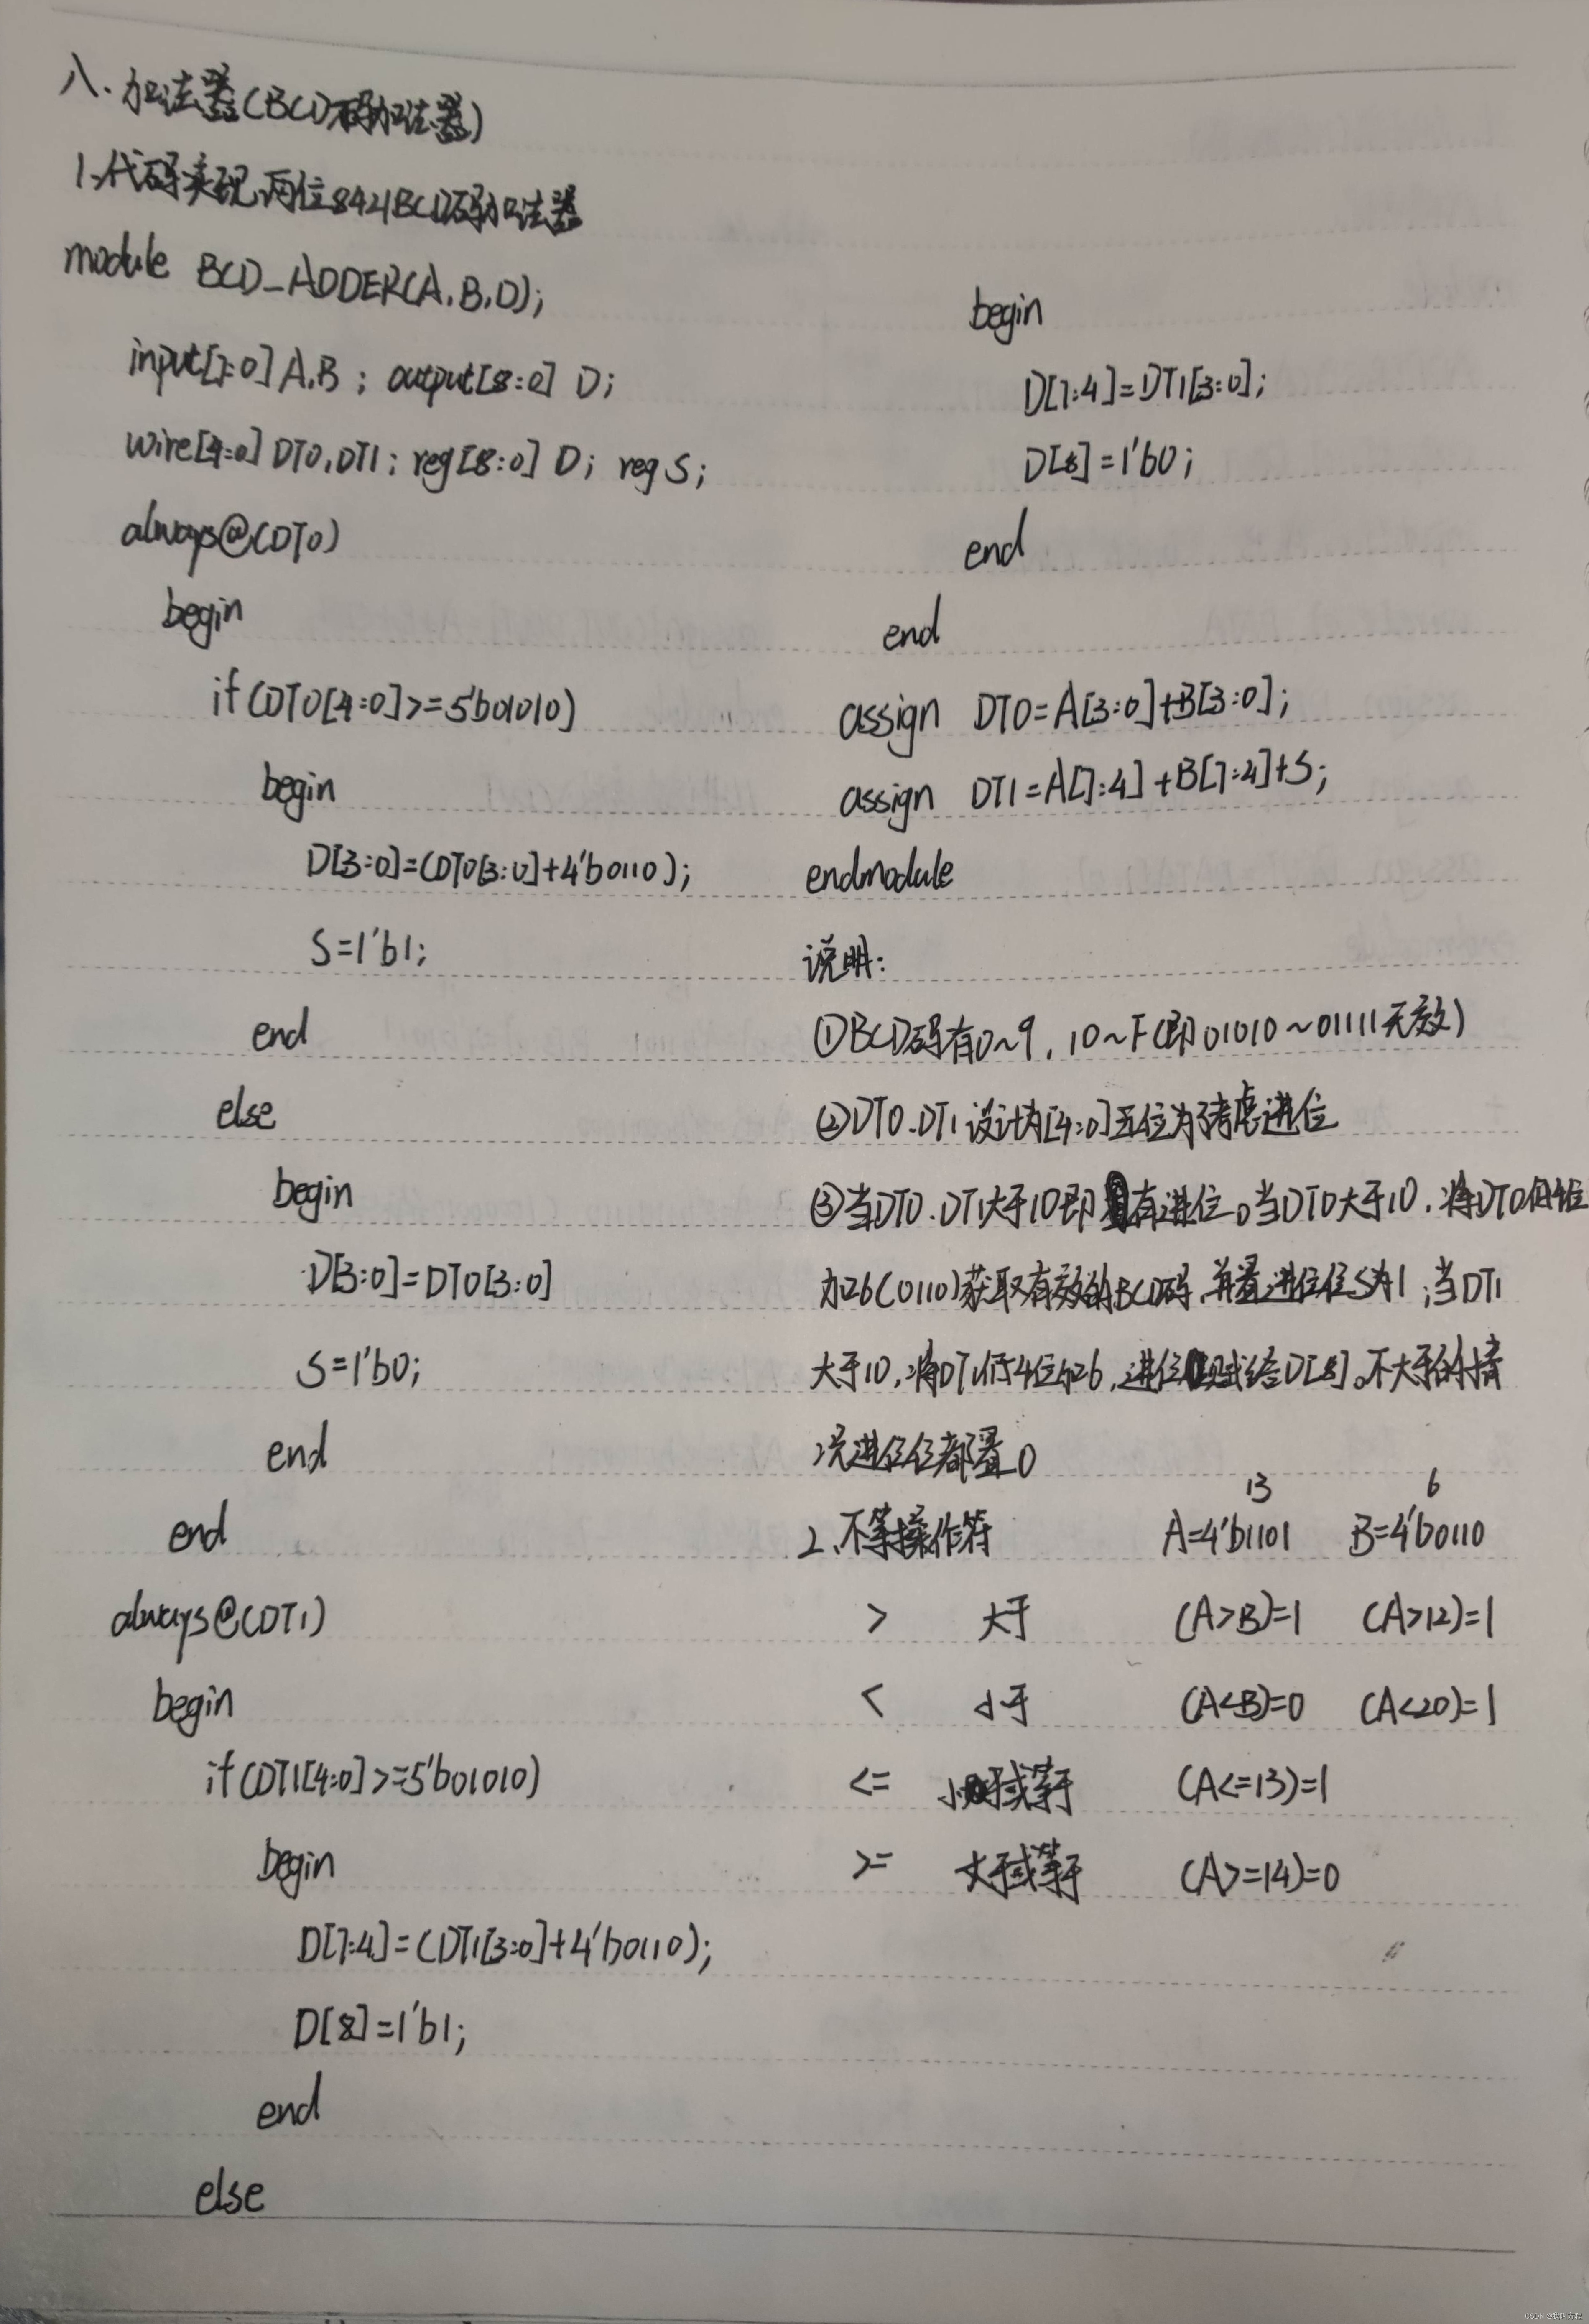 八、加法器(BCD码加法器)
1、代码实现两位8421BCD码加法器
module BCD_ADDER(A,B,D);
input[7:0] A,B; output[8:0] D;
wire[4:0] DT0,DT1; reg[8:0] D; reg S;
always@(DT0)
begin
if(DT0[4:0]>=5'b01010)
begin
D[3:0]=(DT0[3:0]+4'b0110);
S=1'b1;
end
else
begin
D[3:0]=DT0[3:0]
S=1'b0;
end
end
always@(DT1)
begin
if(DT1[4:0]>=5'b01010)
begin
D[7:4]=(DT1[3:0]+4'b0110);
D[8]=1'b1;
end
else
begin
D[7:4]=DT1[3:0];
D[8]=1'b0;
end
end
assign DT0=A[3:0]+B[3:0];
assign DT1=A[7:4]+B[7:4]+S;
endmodule
说明:
①BCD码有0~9,10~F(即01010~01111无效)
②DT0、DT1设计为[4:0]五位为了考虑进位
③当DT0、DT1大于10即有进位。当DT0大于10,将DT0低4位
加6(0110)获取有效的BCD码,并置进位位S为1;当DT1
大于10,将DT1低4位加6,进位赋给D[8]。不大于的情
况进位位都置0
13 6
2、不等操作符 A=4'b1101 B=4'b0110
> 大于 (A>B)=1 (A>12)=1
< 小于 (A<B)=0 (A<20)=1
<= 小于或等于 (A<=13)=1
>= 大于或等于 (A>=14)=0